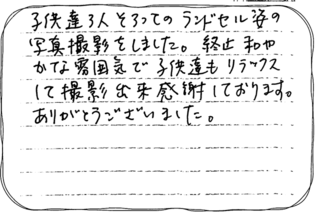 子供達3人そろってのランドセル姿の
写真撮影をしました。終止和や
かな雰囲気で子供達もリラックス
して撮影出来感謝しております。
ありがとうございました。